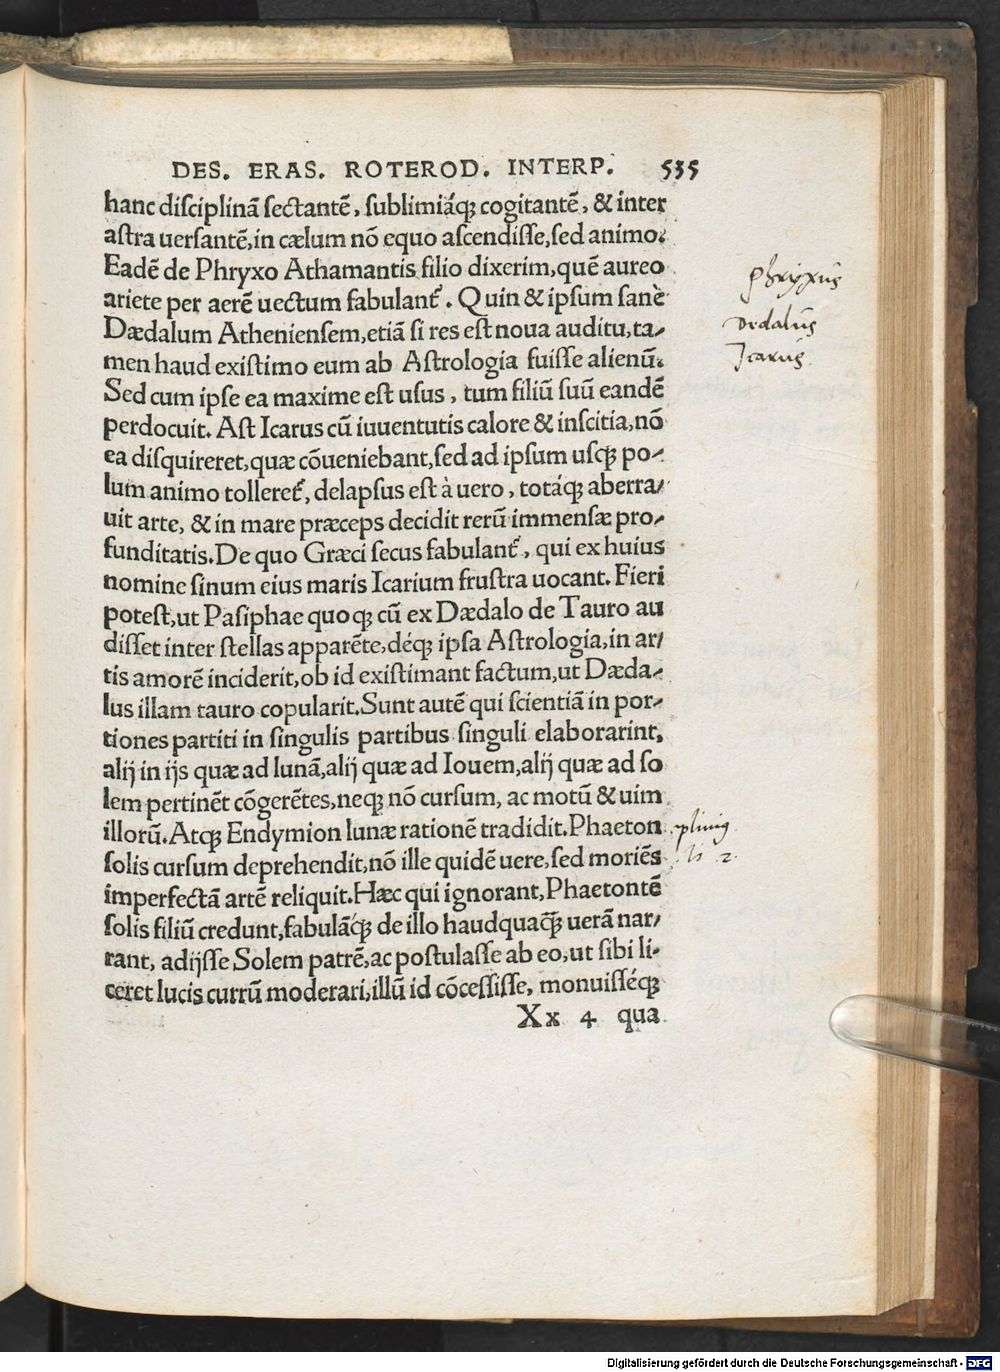 DES. ERAS. ROTEROD. INTERP. 535
hanc diſciplinã ſectantẽ, ſublimiáq; cogitantẽ, & inter
aſtra uerſantẽ, in cælum nõ equo aſcendiſſe, ſed animo.
Eadẽ de Phryxo Athamantis filio dixerim, quẽ aureo
ariete per aerẽ uectum fabulant᷑. Quin & ipſum ſanè
Dædalum Athenienſem, etiã ſi res eſt noua auditu, ta-
men haud exiſtimo eum ab Aſtrologia fuiſſe alienũ.
Sed cum ipſe ea maxime eſt uſus, tum filiũ ſuũ eandẽ
perdocuit. Aſt Icarus cũ iuuentutis calore & inſcitia, nõ
ea diſquireret, quæ cõueniebant, ſed ad ipſum uſq; po-
lum animo tolleret᷑, delapſus eſt à uero, totáq; aberra-
uit arte, & in mare præceps decidit rerũ immenſæ pro-
funditatis. De quo Græci ſecus fabulant᷑, qui ex huius
nomine ſinum eius maris Icarium fruſtra uocant. Fieri
poteſt, ut Paſiphae quoq; cũ ex Dædalo de Tauro au
diſſet inter ſtellas apparẽte, déq; ipſa Aſtrologia, in ar-
tis amorẽ inciderit, ob id exiſtimant factum, ut Dæda-
lus illam tauro copularit. Sunt autẽ qui ſcientiã in por-
tiones partiti in ſingulis partibus ſinguli elaborarint,
alij in ijs quæ ad lunã, alij quæ ad Iouem, alij quæ ad ſo
lem pertinẽt cõgerẽtes, neq; nõ curſum, ac motũ & uim
illorũ. Atq; Endymion lunæ rationẽ tradidit. Phaeton
ſolis curſum deprehendit, nõ ille quidẽ uere, ſed moriẽs
imperfectã artẽ reliquit. Hæc qui ignorant, Phaetontẽ
ſolis filiũ credunt, fabulãq́; de illo haudquaq̃; uerã nar-
rant, adijſſe Solem patrẽ, ac poſtulaſſe ab eo, ut ſibi li-
ceret lucis currũ moderari, illũ id cõceſſiſſe, monuiſſéq;
Xx 4 qua
phryxus
Dedalus
Icarus
plinius
li 2.
Digitalisierung gefördert durch die Deutsche Forschungsgemeinschaft - DFG